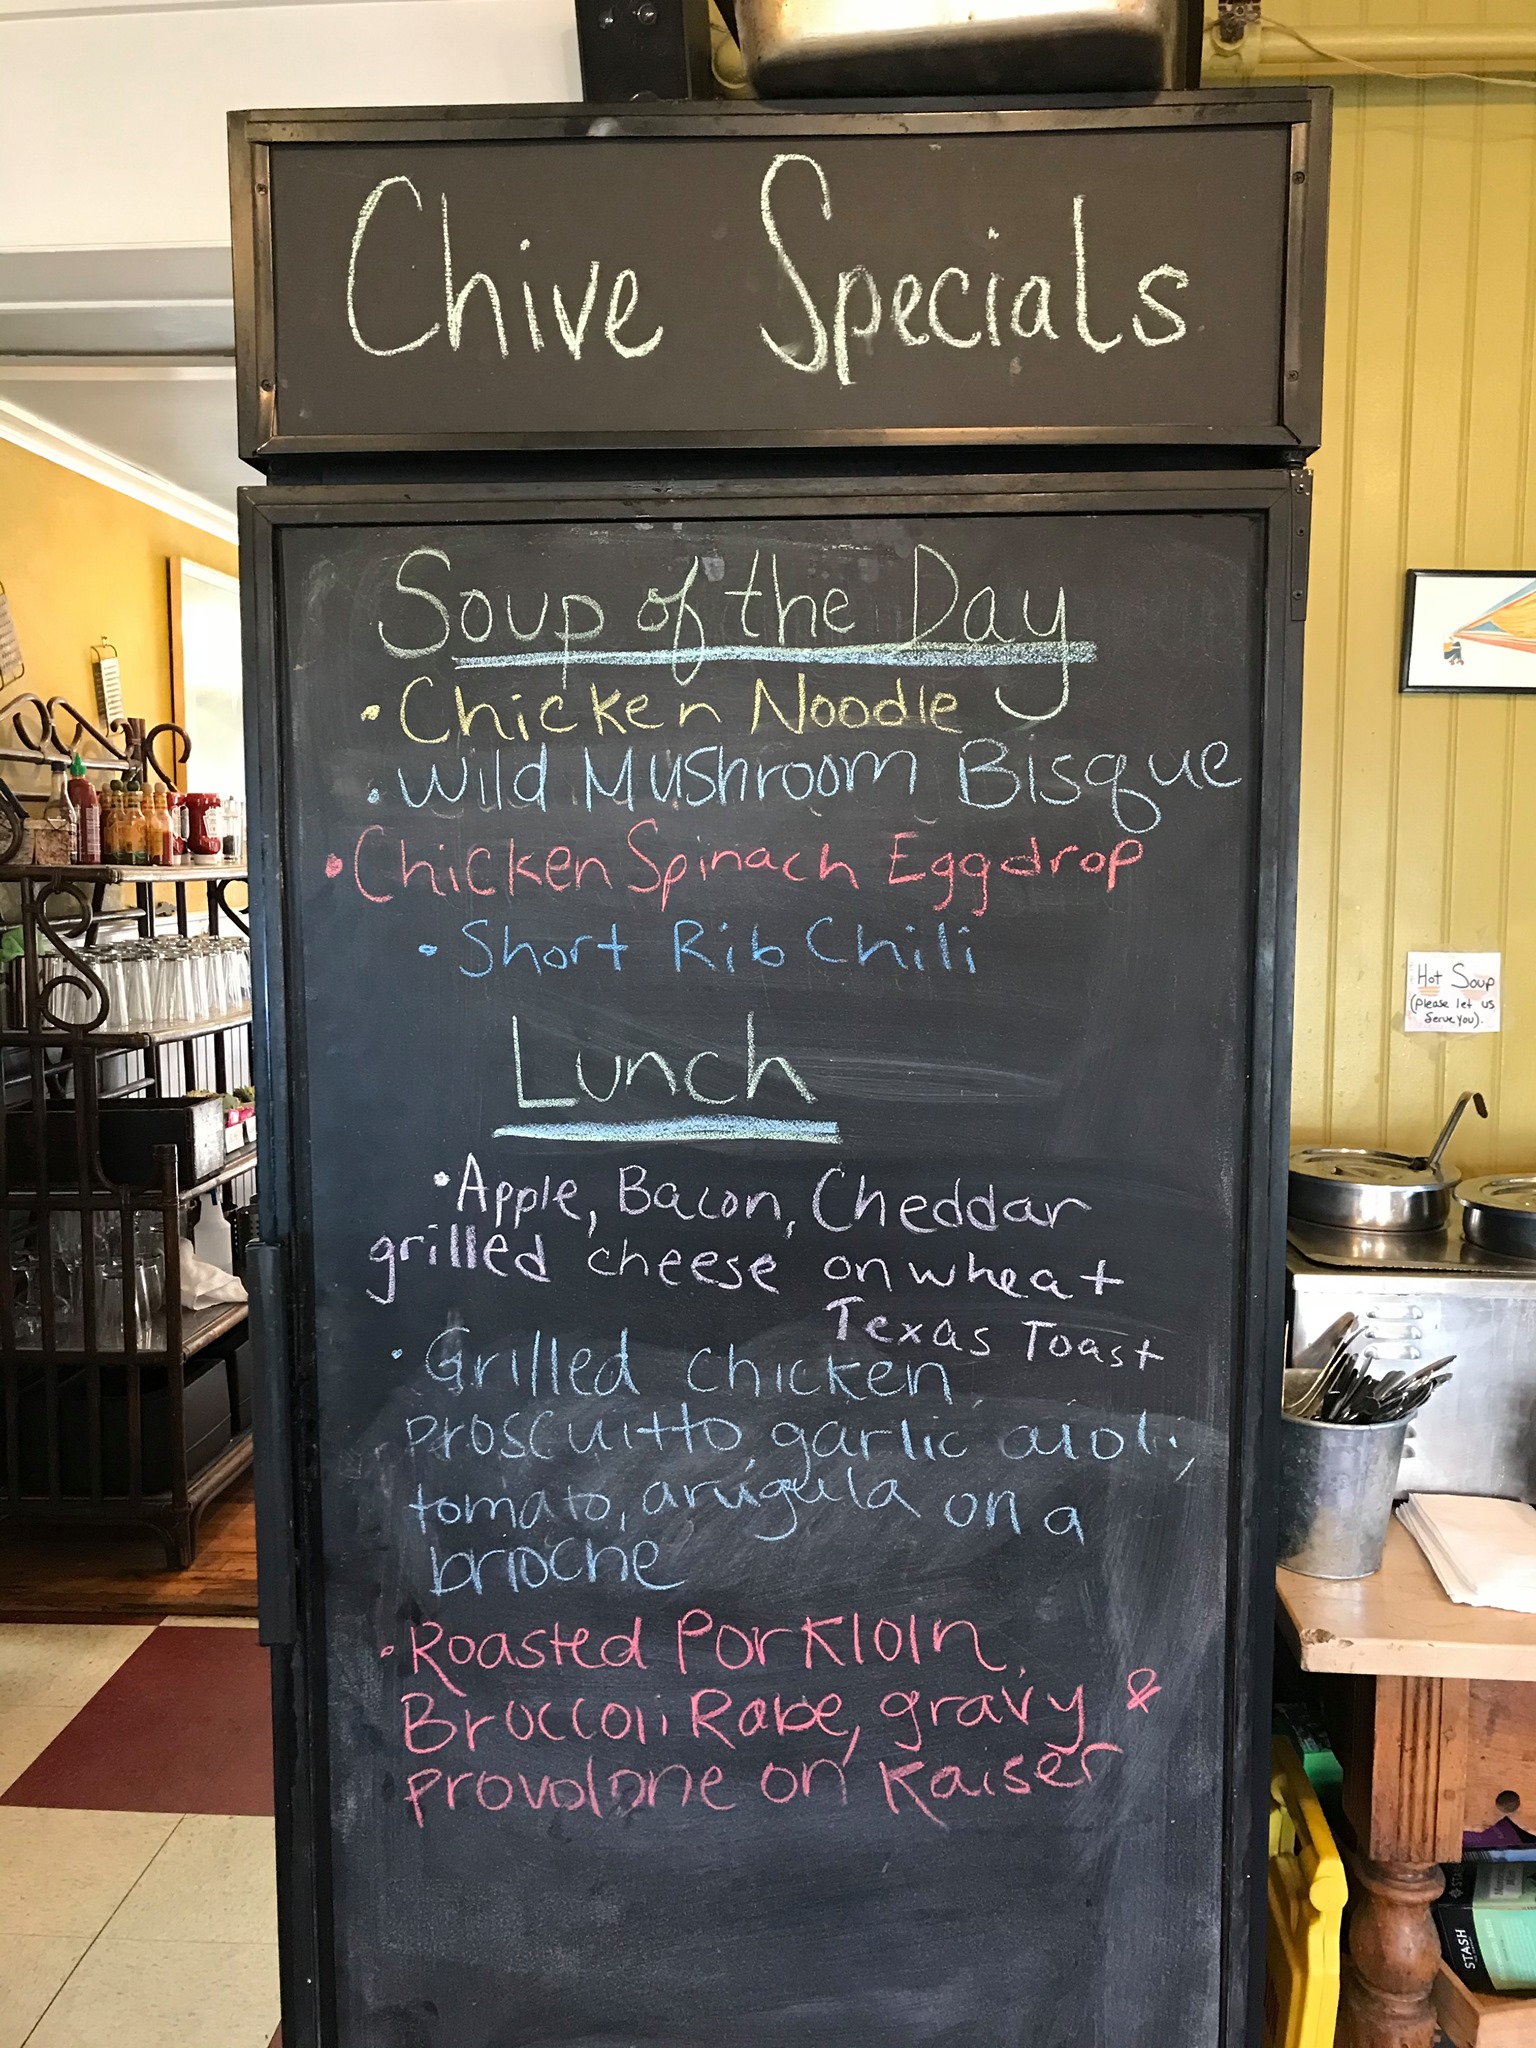 Chive Specials
Soup of the Day
• Chicken Noodle
• Wild Mushroom Bisque
• Chicken Spinach Eggdrop
• Short Rib Chili
Lunch
• Apple, Bacon, Cheddar
grilled cheese on wheat
Texas Toast
• Grilled chicken,
proscuitto, garlic aioli,
tomato, arugula on a
brioche
• Roasted Pork loin,
Broccoli Rabe, gravy &
provolone on Kaiser
Hot Soup
(please let us
serve you).
STASH